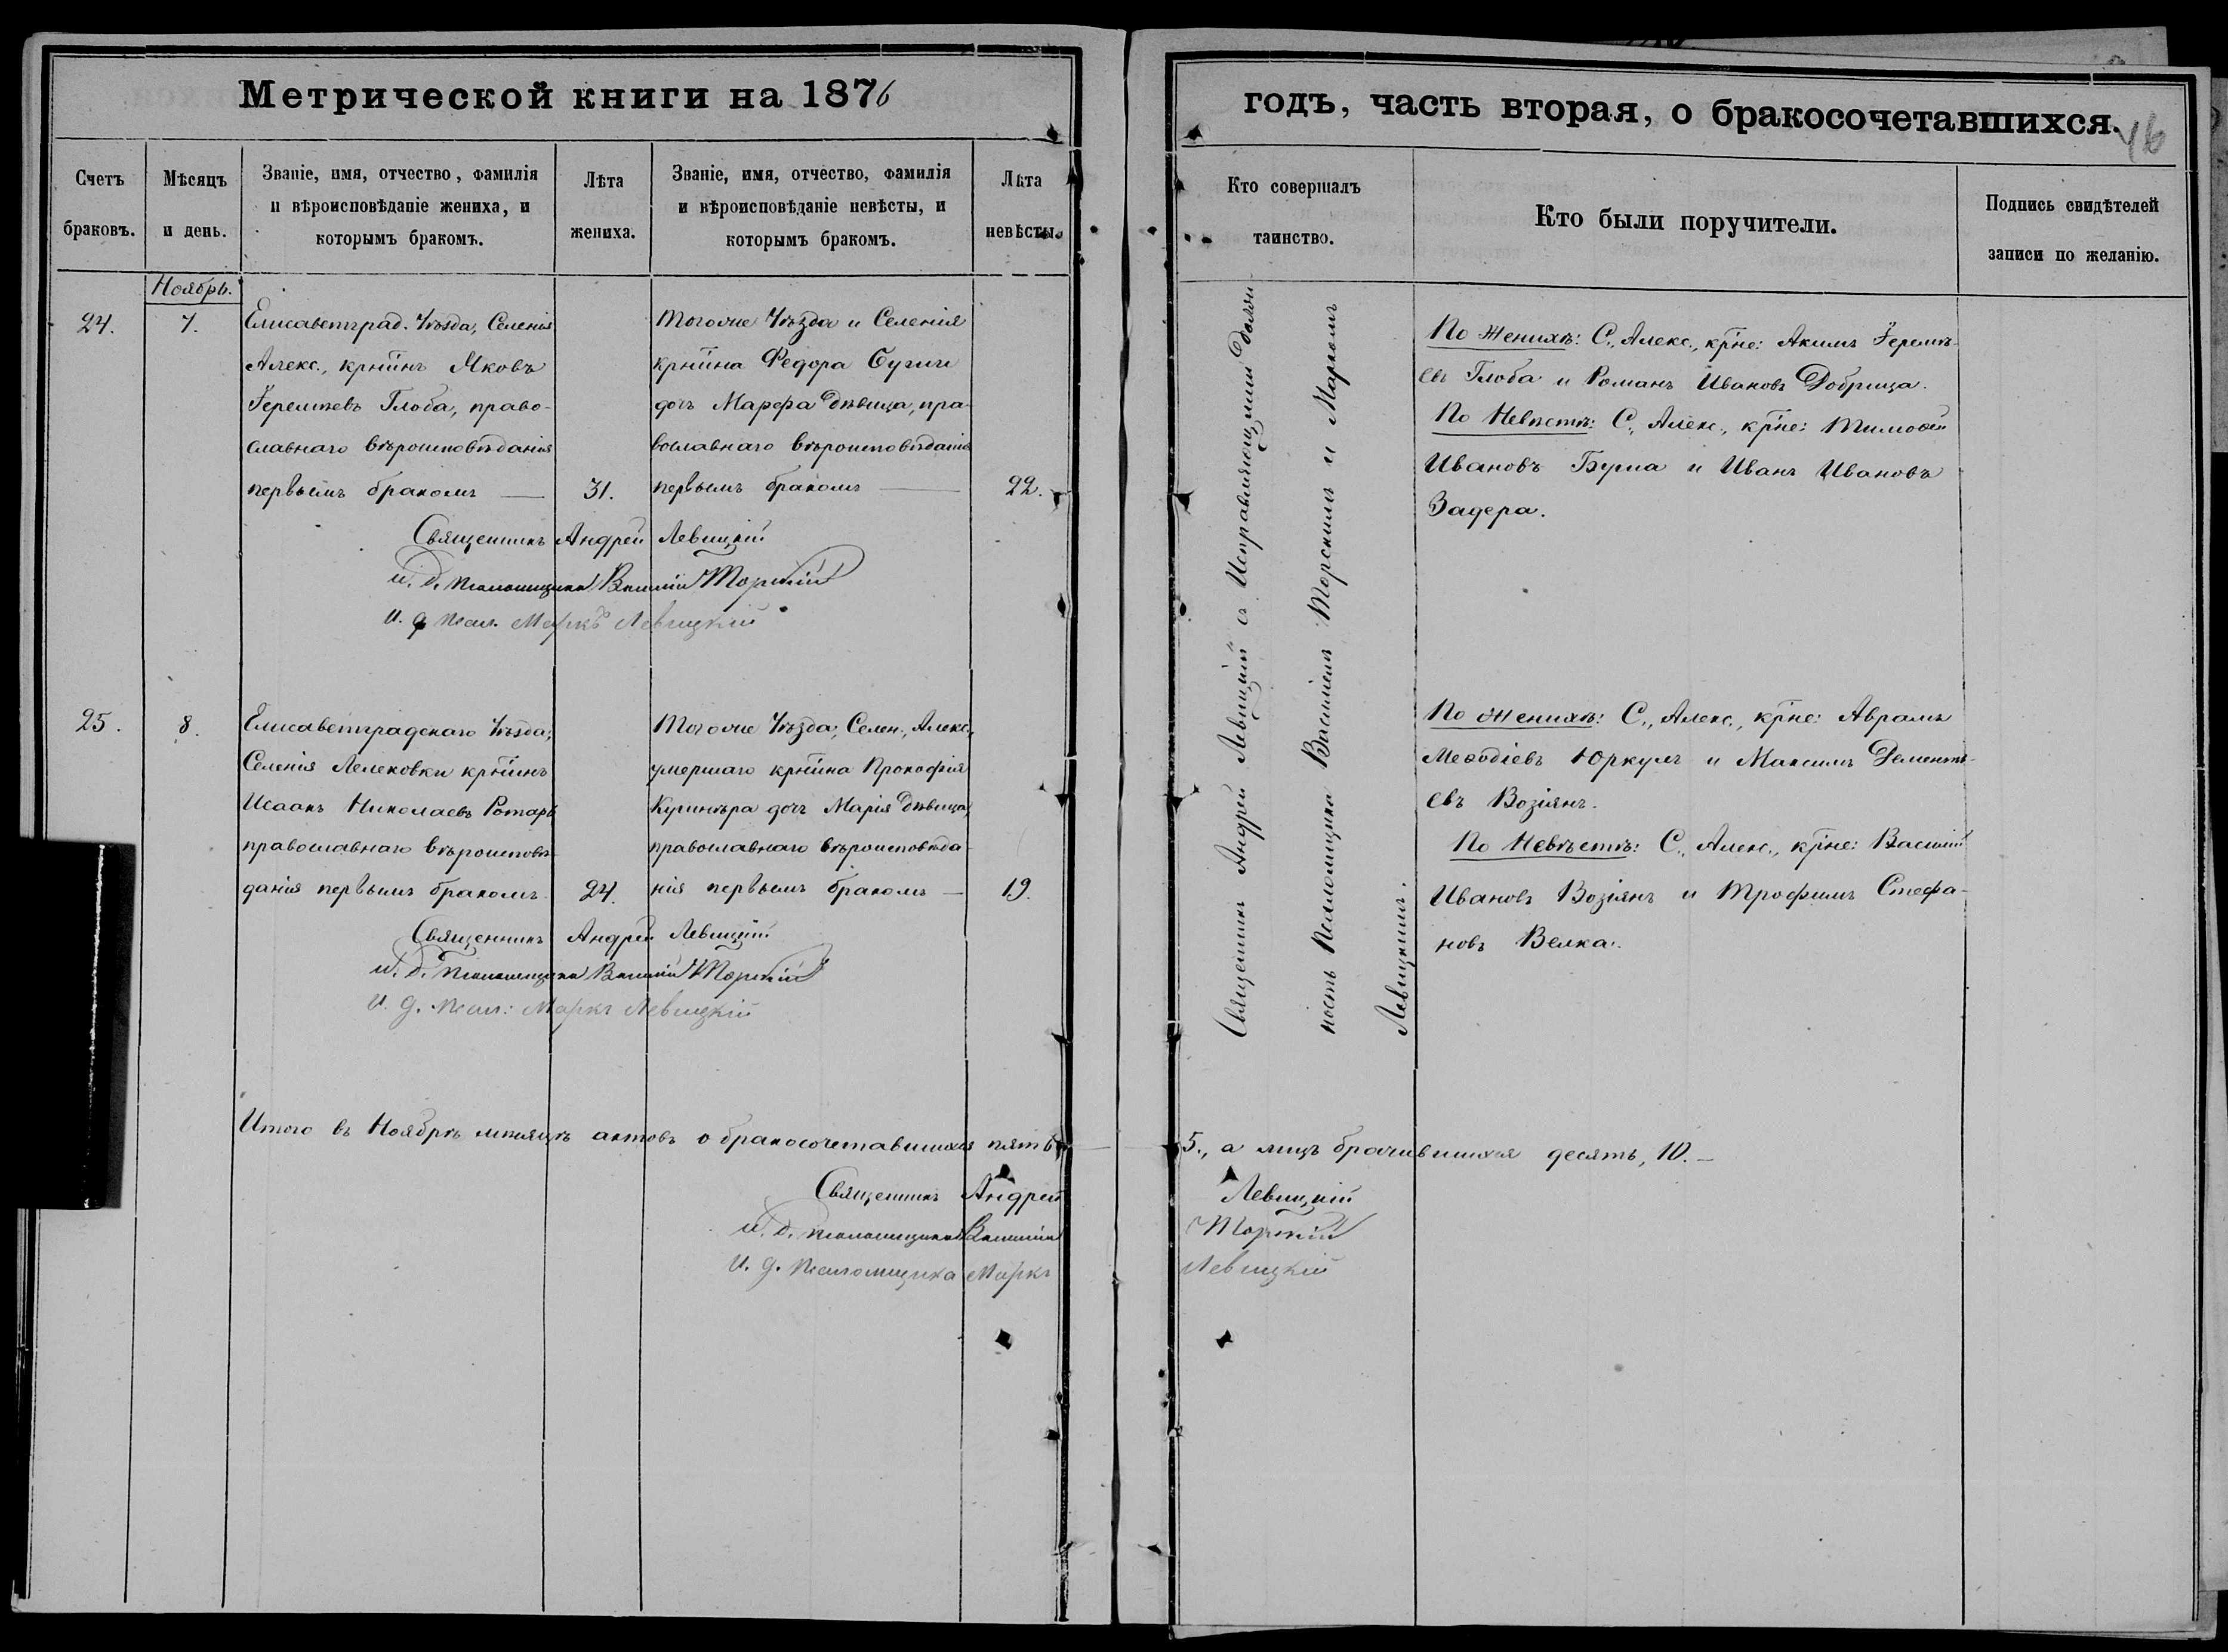 Метрической книги на 1876
годъ, часть вторая, о бракосочетавшихся.
46
Счетъ браковъ.
Мѣсяцъ и день.
Званіе, имя, отчество, фамилія
и вѣроисповѣданіе жениха, и
которымъ бракомъ.
Лѣта жениха.
Званіе, имя, отчество, фамилія
и вѣроисповѣданіе невѣсты, и
которымъ бракомъ.
Лѣта невѣсты.
Кто совершалъ
таинство.
Кто были поручители.
Подпись свидѣтелей
записи по желанію.
Ноябрь.
24.
7.
Елисаветград. Уѣзда, Селенія
Алекс., крнйнъ Яковъ
Іеремѣевъ Глоба, право-
славнаго вѣроисповѣданія
первымъ бракомъ —
31.
Тогоже Уѣзда и Селенія
крнйна Федора
дочь Марфа дѣвица, пра-
вославнаго вѣроисповѣданія
первымъ бракомъ —
22.
Священникъ Андрей Левицкій
и. д. псаломщика Василій Торскій
и. д. псал. Маркъ Левицкій
25.
8.
Елисаветградскаго Уѣзда,
Селенія Лелековки крнйнъ
Исаакъ Николаевъ Ротарь
православнаго вѣроисповѣ-
данія первымъ бракомъ.
24.
Тогоже Уѣзда, Селен., Алекс.,
умершаго крнйна Прокофія
дочь Марія дѣвица,
православнаго вѣроисповѣда-
нія первымъ бракомъ —
19.
Священникъ Андрей Левицкій
и. д. псаломщика Василій Торскій
и. д. псал: Маркъ Левицкій
Священникъ Андрей Левицкій съ Исправляющими долж-
ность Псаломщика Василіемъ Торскимъ и Маркомъ
Левицкимъ.
По Женихѣ: С., Алекс., крне: Акимъ Іеремѣ-
евъ Глоба и Романъ Ивановъ Добрица.
По Невѣстѣ: С., Алекс., крне: Тимоѳей
Ивановъ Бурма и Иванъ Ивановъ
Задера.
По Женихѣ: С., Алекс., крне: Аврамъ
Меѳодіевъ Юркулъ и Максимъ Дементѣ-
евъ Возіянъ.
По Невѣстѣ: С., Алекс., крне: Василій
Ивановъ Возіянъ и Трофимъ Стефа-
новъ Велка.
Итого въ Ноябрѣ мѣсяцѣ актовъ о бракосочетавшихся пять
5., а лицъ брачившихся десять, 10.—
Священникъ Андрей Левицкій
и. д. псаломщика Василій Торскій
и. д. псаломщика Маркъ Левицкій